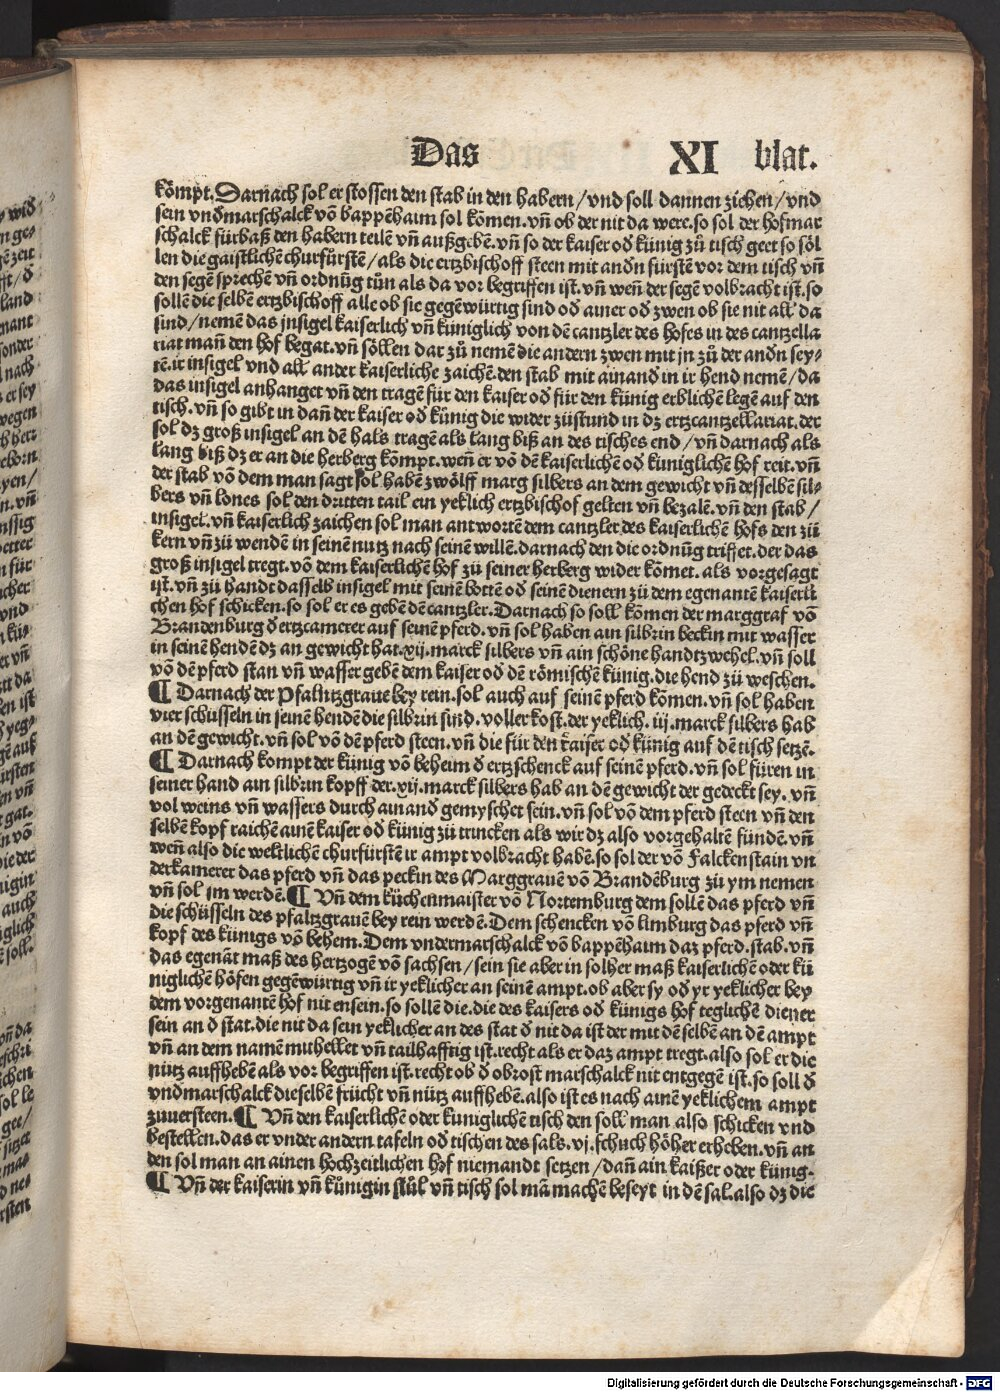 Das XI blat.
kōmpt. Darnach sol er stossen den stab in den habern / vnd soll dannen ziehen / vnd
sein vnđmarschalck vō bappēhaim sol kōmen. vn̄ ob der nit da were. so sol der hofmar
schalck fürbaß den habern teilē vn̄ außgebē. vn̄ so der kaiser ođ künig zů tisch geet so söl
len die gaistlichē churfürstē / als die ertzbischoff steen mit anđn fürstē vor dem tisch vn̄
den segē sprechē vn̄ ordnūg tůn als da vor begriffen ist. vn̄ wen̄ der segē volbracht ist. so
sollē die selben ertzbischoff alle ob sie gegēwürtig sind ođ ainer ođ zwen ob sie nit all da
sind / nemē das jnsigel kaiserlich vn̄ küniglich von dē cantzler des hofes in des cantzella
riat man̄ den hof begat. vn̄ söllen dar zů nemē die andern zwen mit jn zů der anđn sey-
tē. ir insigel vnd all ander kaiserliche zaichē. den stab mit ainanđ in ir hend nemē / da
das insigel anhanget vn̄ den tragē für den kaiser ođ für den künig erblichē legē auf den
tisch. vn̄ so gibt in dan̄ der kaiser ođ künig die wider zůstund in dz ertzcantzellariat. der
sol dz groß insigel an dē hals tragē als lang biß an des tisches end / vn̄ darnach als
lang biß dz er an die herberg kōmpt. wen̄ er vō dē kaiserlichē ođ küniglichē hof reit. vn̄
der stab vō dem man sagt sol habē zwölff marg silbers an dem gewicht vn̄ desselbē sil-
bers vn̄ lones sol den dritten tail ein yeklich ertzbischof gelten vn̄ bezalē. vn̄ den stab /
insigel. vn̄ kaiserlich zaichen sol man antwortē dem cantzler des kaiserlichē hofs den zů
kern vn̄ zů wendē in seinē nutz nach seinē willē. darnach den die ordnūg triffet. der das
groß insigel tregt. vō dem kaiserlichē hof zů seiner herberg wider kōmet. als vorgesagt
ist. vn̄ zů handt dasselb insigel mit seinē bottē ođ seinē dienern zů dem egenantē kaiserli
chen hof schicken. so sol er es gebē dē cantzler. Darnach so soll kōmen der marggraf vō
Brandenburg đ ertzcamerer auf seinē pferd. vn̄ sol haben ain silbrin beckin mit wasser
in seinē hendē dz an gewicht hat. xij. marck silbers vn̄ ain schöne handtzwehel. vn̄ soll
vō dē pferd stan vn̄ wasser gebē dem kaiser ođ dē römischē künig. die hend zů weschen.
¶ Darnach der Pfalntzgraue bey rein. sol auch auf seinē pferd kōmen. vn̄ sol haben
vier schüsseln in seinē hendē die silbrin sind. voller kost. der yeklich. iij. marck silbers hab
an dē gewicht. vn̄ sol vō dē pferd steen. vn̄ die für den kaiser ođ künig auf dē tisch setzē.
¶ Darnach kompt der künig vō beheim đ ertzschenck auf seinē pferd. vn̄ sol füren in
seiner hand ain silbrin kopff der. xij. marck silbers hab an dē gewicht der gedeckt sey. vn̄
vol weins vn̄ wassers durch ainanđ gemyschet sein. vn̄ sol vō dem pferd steen vn̄ den
selbē kopf raichē ainē kaiser ođ künig zů trincken als wir dz also vorgehaltē fündē. vn̄
wen̄ also die weltlichē churfürstē ir ampt volbracht habē. so sol der vō Falckenstain vn
derkamerer das pferd vn̄ das peckin des Marggrauē vō Brandēburg zů ym nemen
vn̄ sol im werdē. ¶ Vn̄ dem küchenmaister vō Nortemburg dem sollē das pferd vn̄
die schüsseln des pfaltzgrauē bey rein werdē. Dem schencken vō limburg das pferd vn̄
kopf des künigs vō behem. Dem vndermarschalck vō bappēhaim daz pferd. stab. vn̄
das egenāt maß des hertzogē vō sachsen / sein sie aber in solher maß kaiserlichē oder kü
niglichē höfen gegēwürtig vn̄ ir yeklicher an seinē ampt. ob aber sy ođ yr yeklicher bey
dem vorgenantē hof nit ensein. so sollē die. die des kaisers ođ künigs hof teglichē diener
sein an đ stat. die nit da sein yeklicher an des stat đ nit da ist der mit dē selbē an dē ampt
vn̄ an dem namē mithellet vn̄ tailhafftig ist. recht als er daz ampt tregt. also sol er die
nütz auffhebē als vor begriffen ist. recht ob đ obrost marschalck nit entgegē ist. so soll đ
vnđmarschalck dieselbē frücht vn̄ nütz auffhebē. also ist es nach ainē yeklichem ampt
zuuersteen. ¶ Vn̄ den kaiserlichē oder küniglichē tisch den soll man also schicken vnd
bestellen. das er vnder andern tafeln ođ tischen des sals. vj. schuch höher erheben. vn̄ an
den sol man an ainen hochzeitlichen hof niemandt setzen / dan̄ ain kaißer oder künig.
¶ Vn̄ der kaiserin vn̄ künigin stůl vn̄ tisch sol mā machē beseyt in dē sal. also dz die
Digitalisierung gefördert durch die Deutsche Forschungsgemeinschaft - DFG